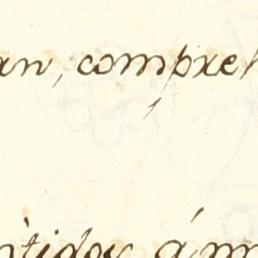 an, compreh
ntidos á m